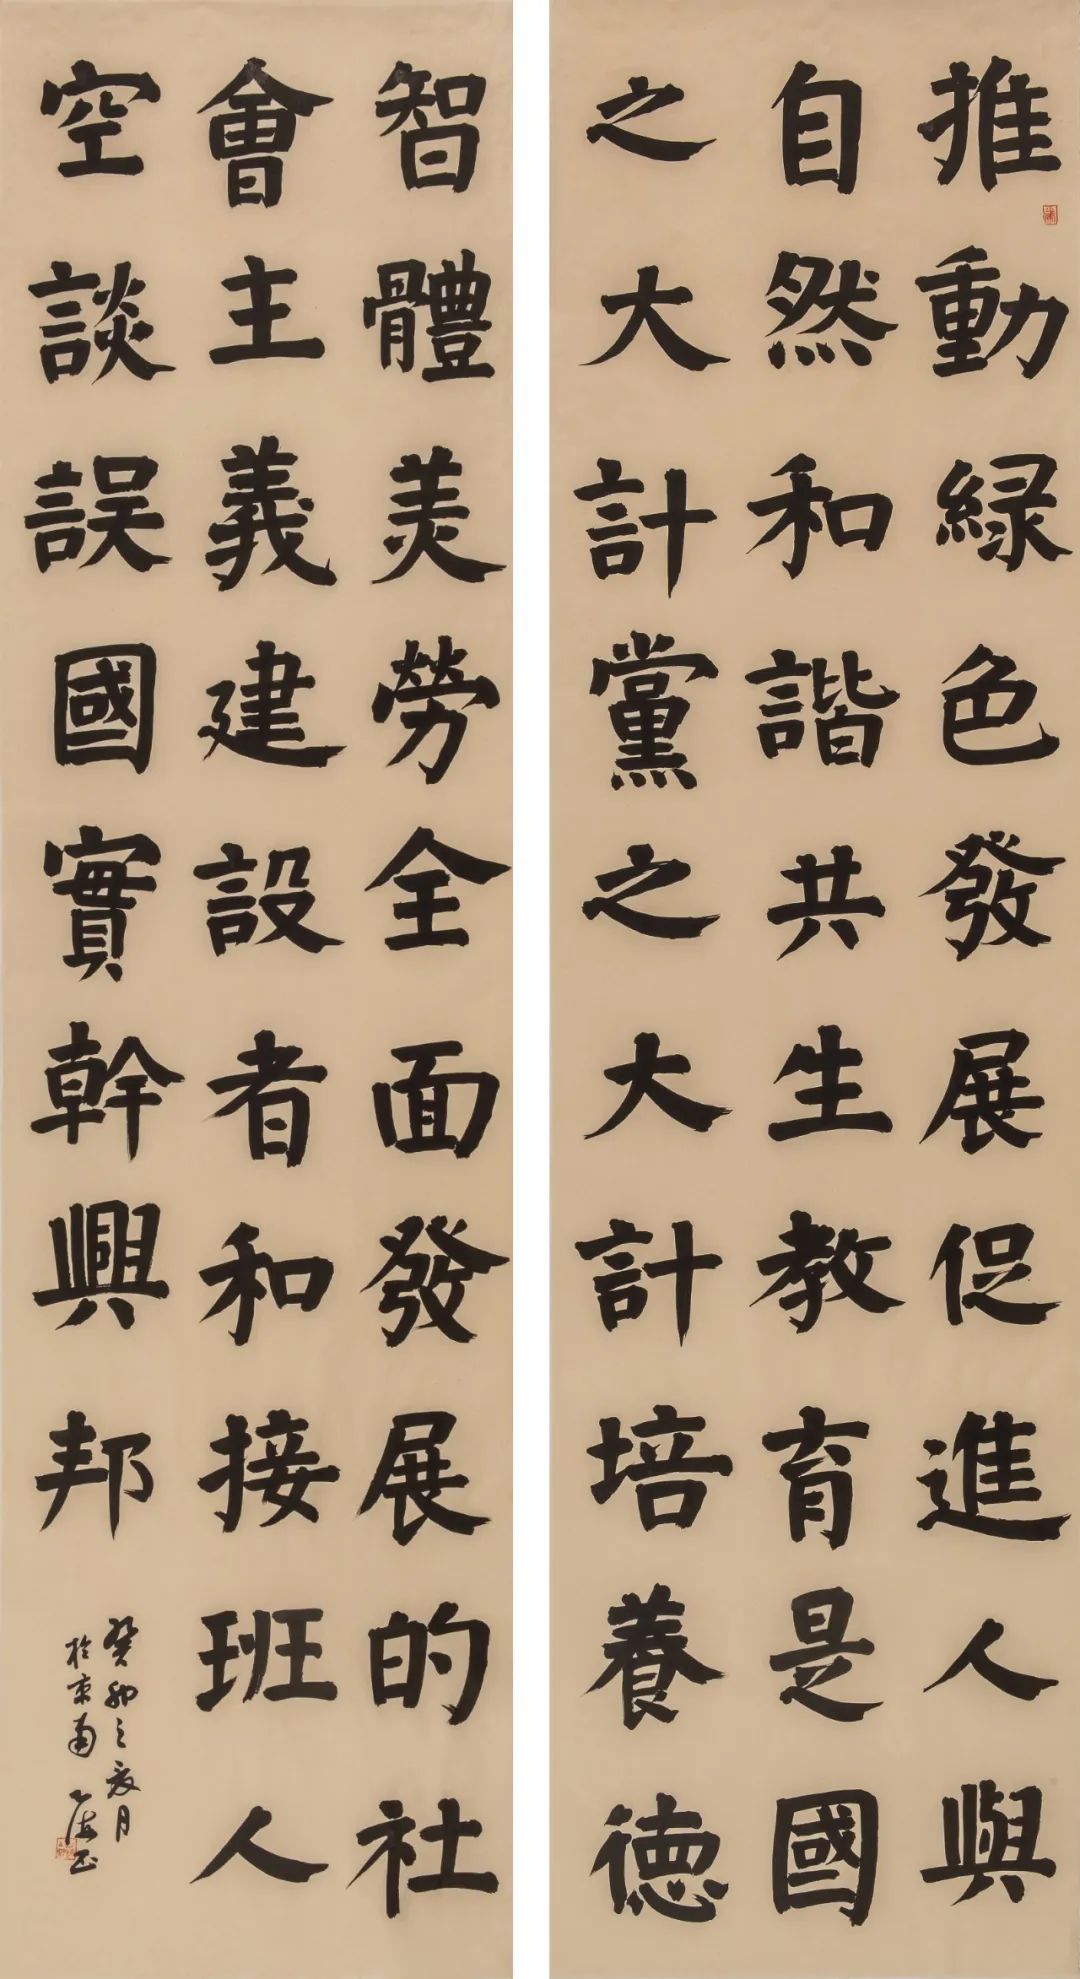 推動緑色發展促進人與
自然和諧共生教育是國
之大計黨之大計培養德
智體美勞全面發展的社
會主義建設者和接班人
空談誤國實幹興邦
癸卯之夏月
於東南